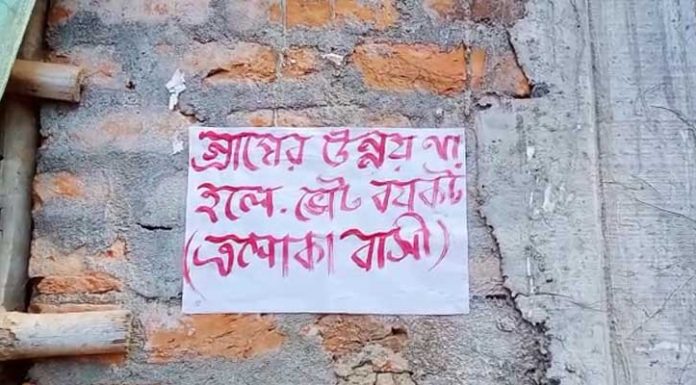 গ্রামের উন্নয় না
হলে. ভোট বয়কট
(এলাকা বাসী)